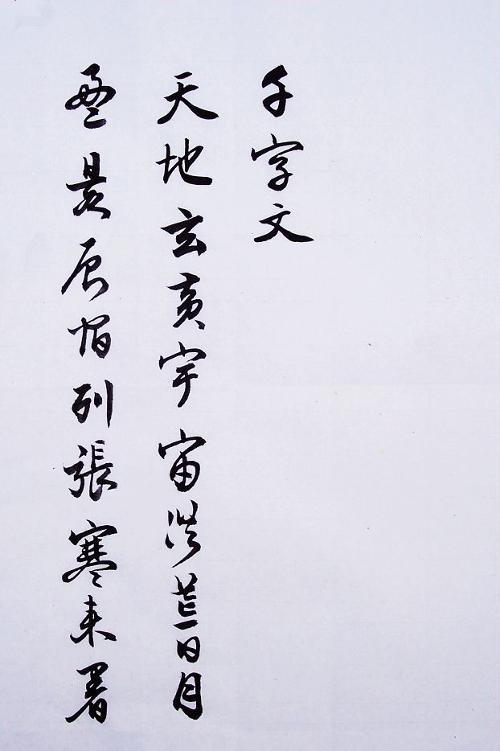 千字文
天地玄黃宇宙洪荒日月
盈昃辰宿列張寒来暑